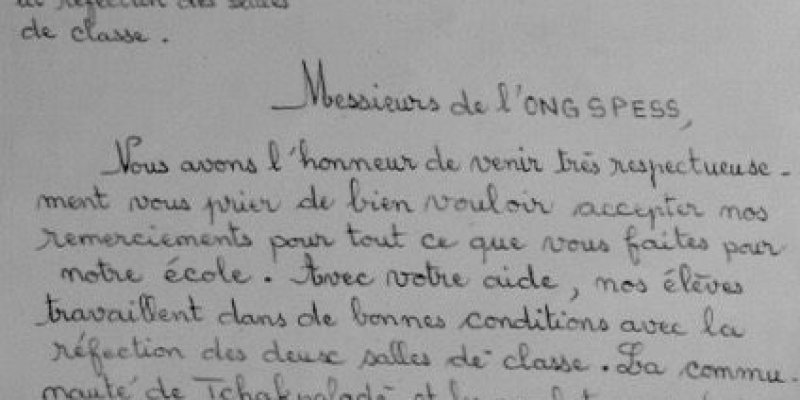 et réfection des salles
de classe.
Messieurs de l'ONG SPESS,
Nous avons l'honneur de venir très respectueuse-
ment vous prier de bien vouloir accepter nos
remerciements pour tout ce que vous faites pour
notre école. Avec votre aide, nos élèves
travaillent dans de bonnes conditions avec la
réfection des deux salles de classe. La commu-
nauté de Tchakpaladè et